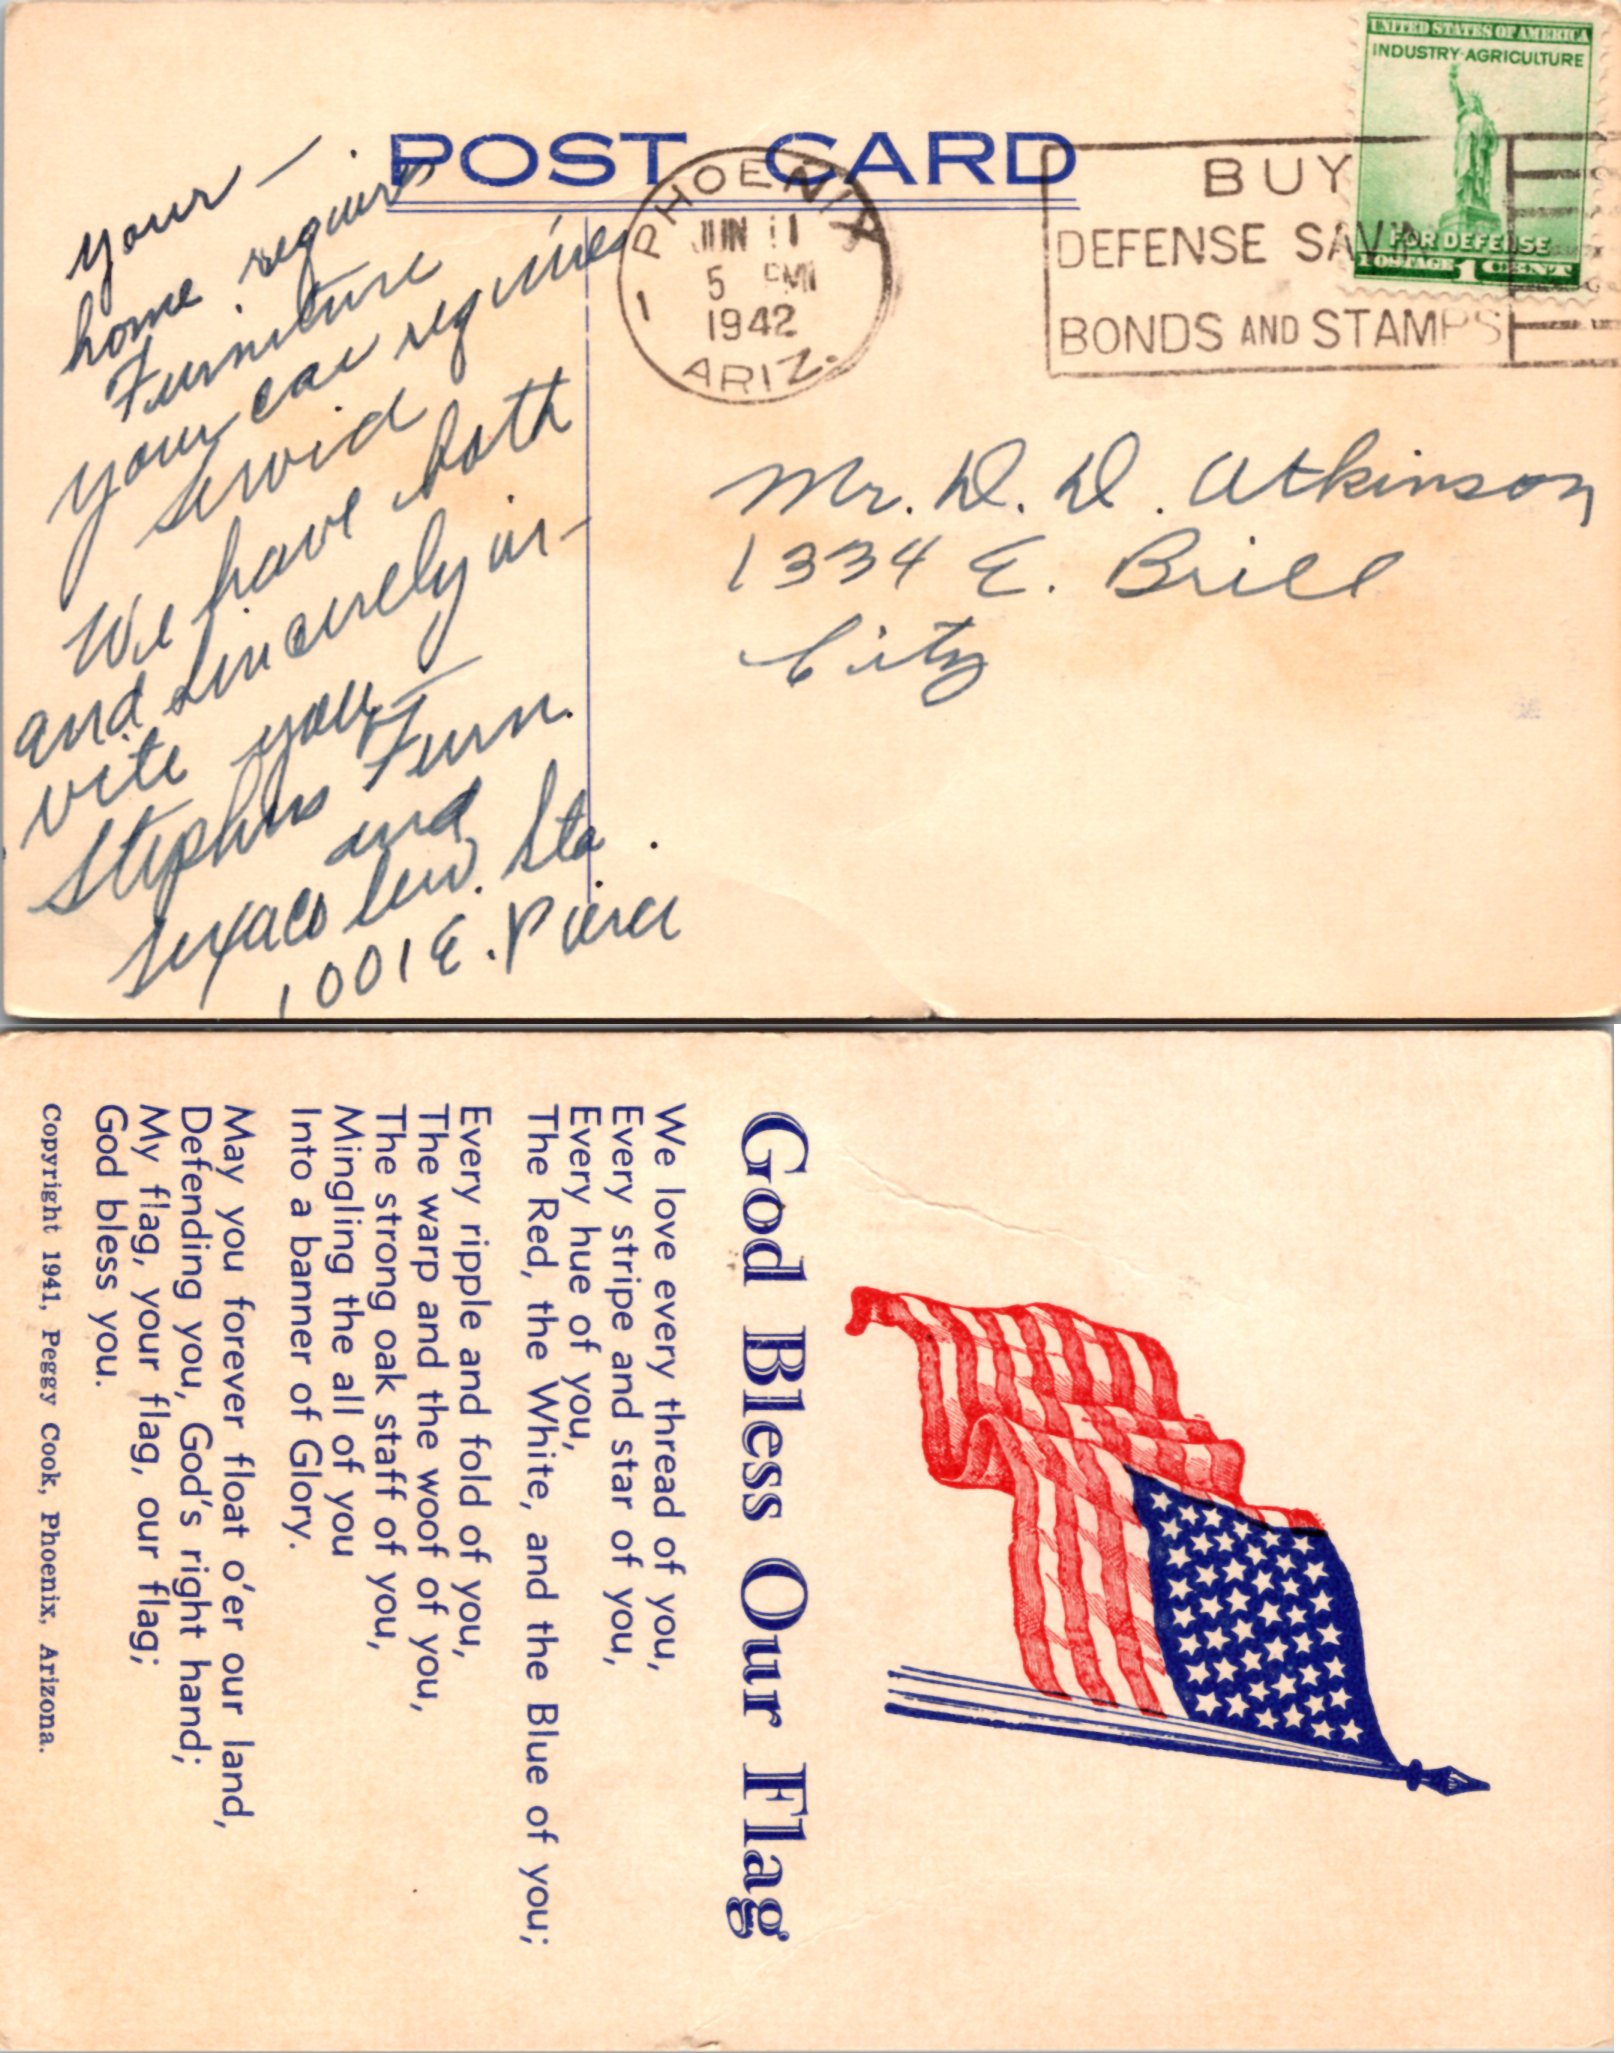 POST CARD
PHOENIX
JUN 11
5 PM
1942
ARIZ.
1
BUY
DEFENSE SAVIN
BONDS AND STAMPS
UNITED STATES OF AMERICA
INDUSTRY·AGRICULTURE
FOR DEFENSE
POSTAGE 1 CENT
your —
home requires
Furniture
your car requires
Mr. D. D. Atkinson
1334 E. Brill
City
We have both
and sincerely in-
vite you —
Stephens Furn.
and
Texaco Serv. Sta.
1001 E. Pierce
God Bless Our Flag
We love every thread of you,
Every stripe and star of you,
Every hue of you,
The Red, the White, and the Blue of you;
Every ripple and fold of you,
The warp and the woof of you,
The strong oak staff of you,
Mingling the all of you
Into a banner of Glory.
May you forever float o'er our land,
Defending you, God's right hand;
My flag, your flag, our flag;
God bless you.
Copyright 1941, Peggy Cook, Phoenix, Arizona.